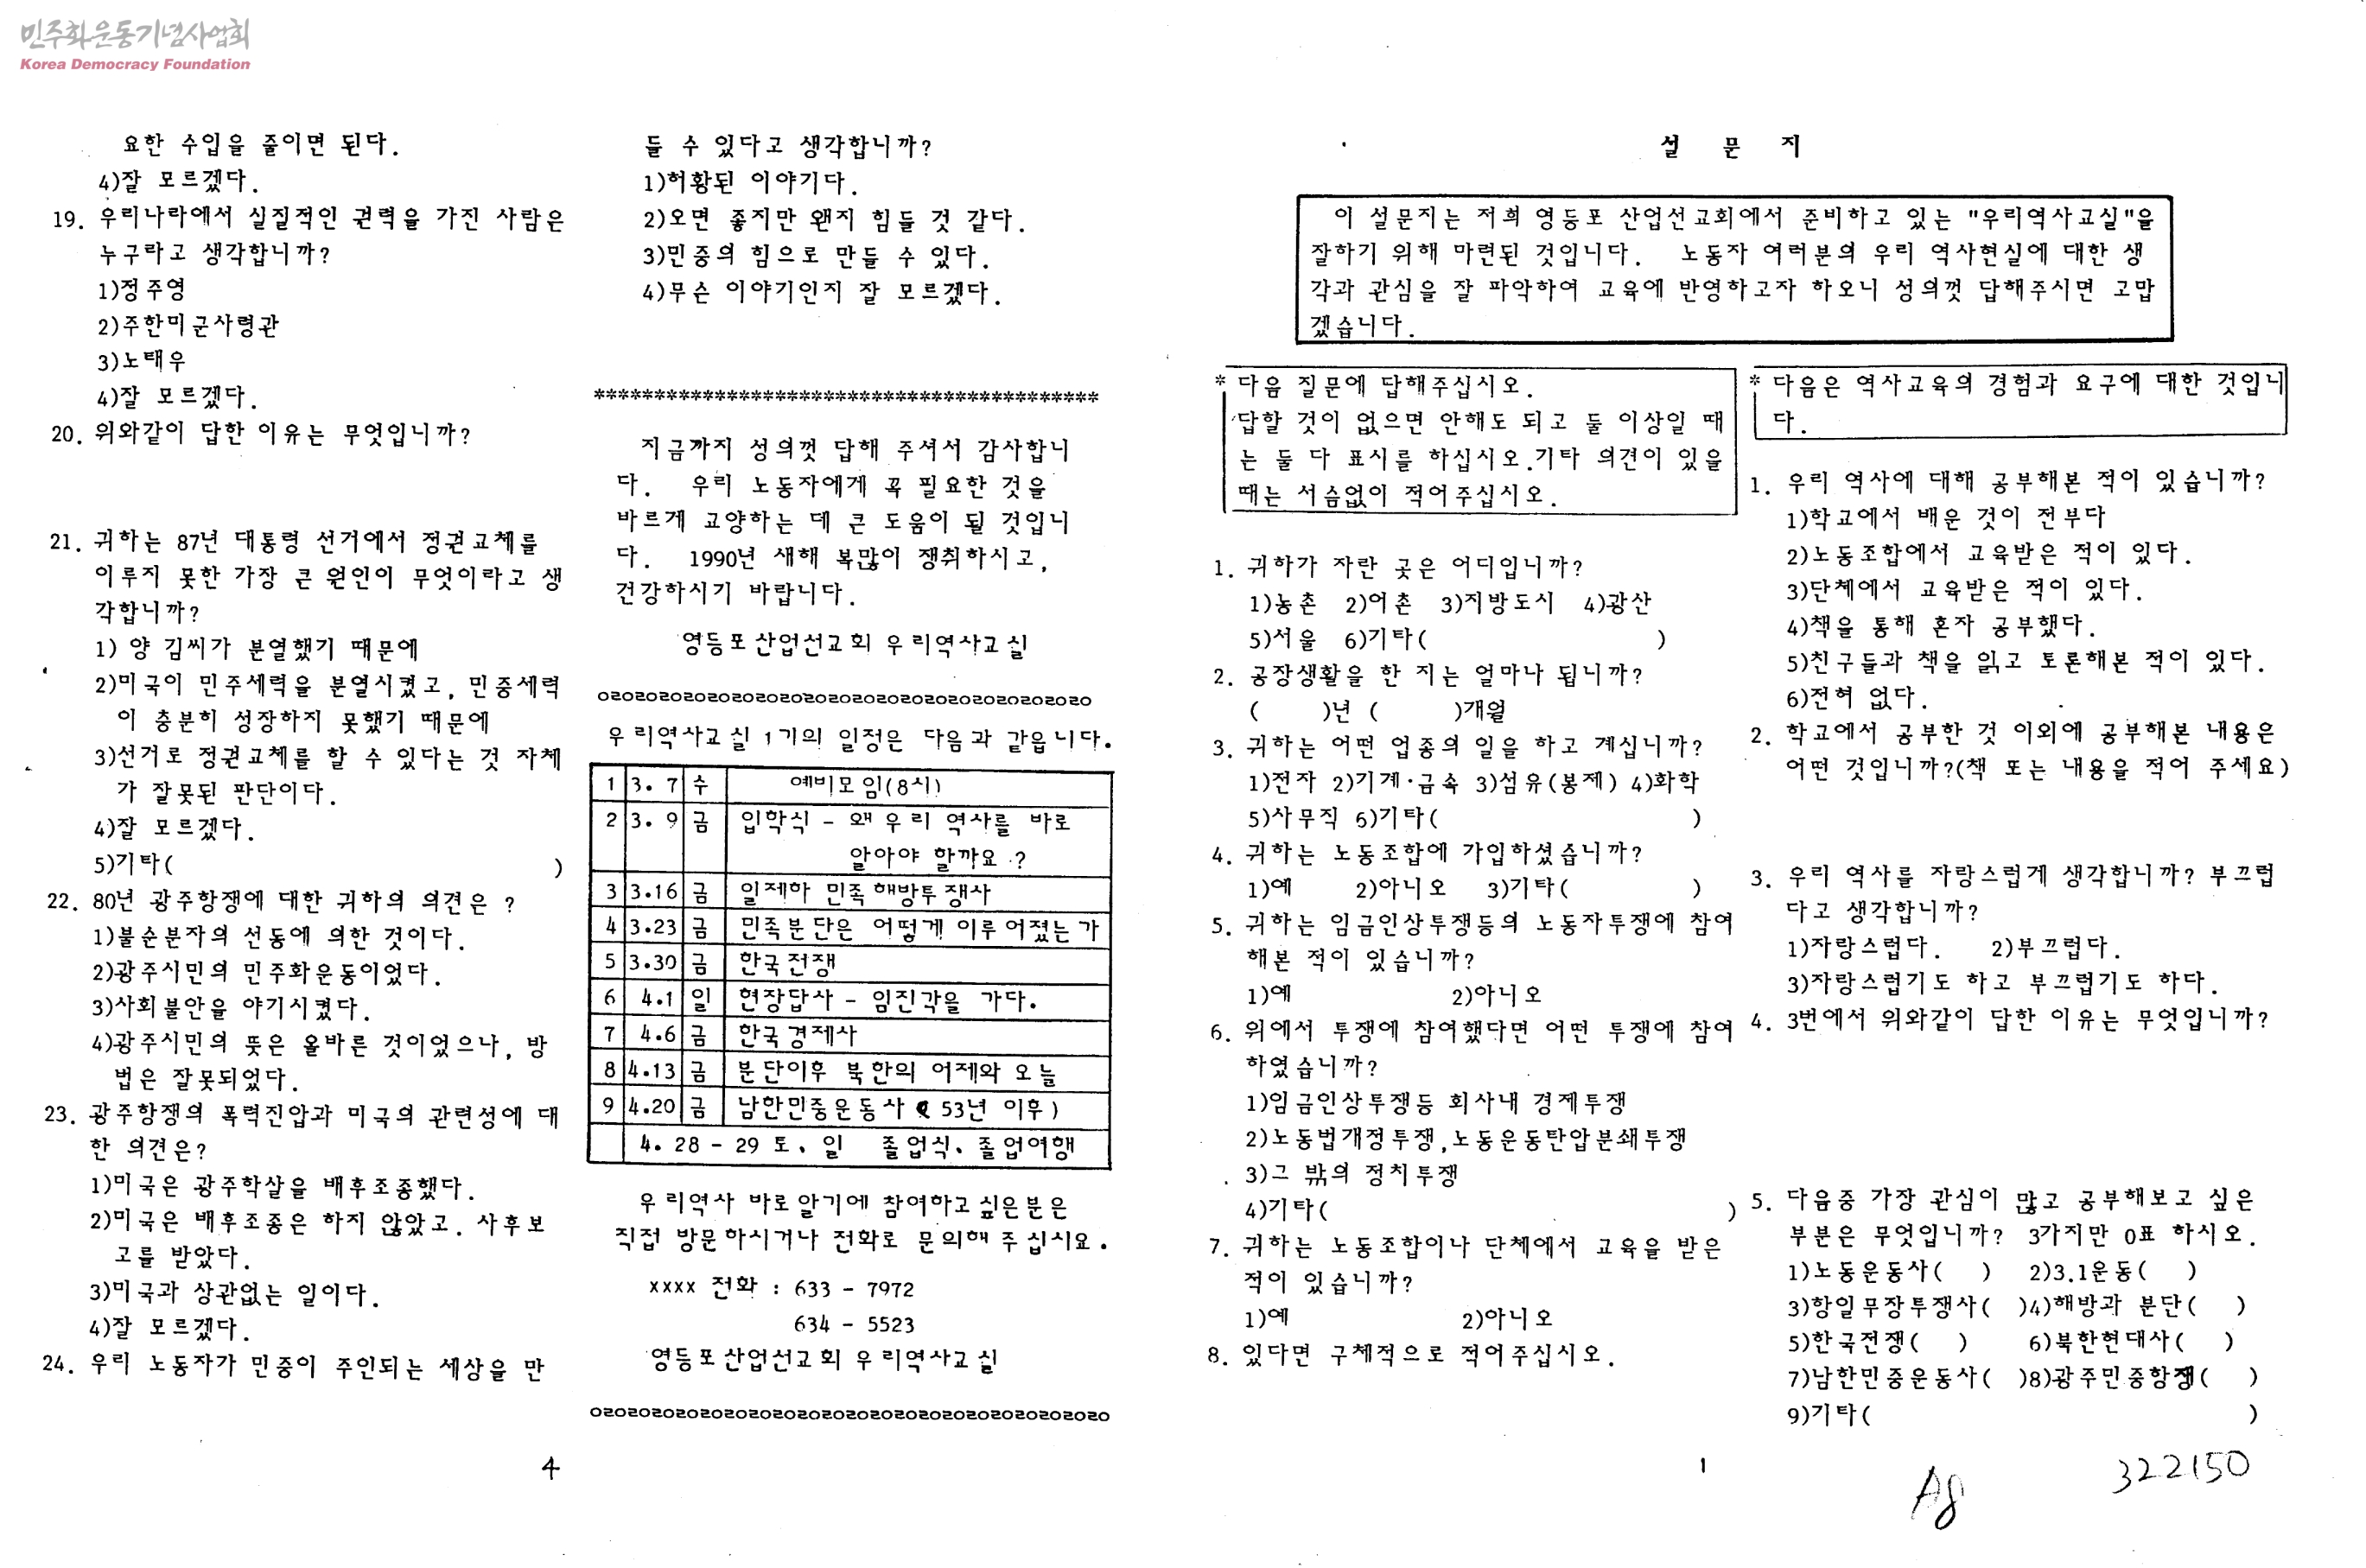 민주화운동기념사업회
Korea Democracy Foundation
요한 수입을 줄이면 된다.
4)잘 모르겠다.
19. 우리나라에서 실질적인 권력을 가진 사람은
누구라고 생각합니까?
1)정주영
2)주한미군사령관
3)노태우
4)잘 모르겠다.
20. 위와같이 답한 이유는 무엇입니까?
21. 귀하는 87년 대통령 선거에서 정권교체를
이루지 못한 가장 큰 원인이 무엇이라고 생
각합니까?
1) 양 김씨가 분열했기 때문에
2)미국이 민주세력을 분열시켰고, 민중세력
이 충분히 성장하지 못했기 때문에
3)선거로 정권교체를 할 수 있다는 것 자체
가 잘못된 판단이다.
4)잘 모르겠다.
5)기타( )
22. 80년 광주항쟁에 대한 귀하의 의견은 ?
1)불순분자의 선동에 의한 것이다.
2)광주시민의 민주화운동이었다.
3)사회불안을 야기시켰다.
4)광주시민의 뜻은 올바른 것이었으나, 방
법은 잘못되었다.
23. 광주항쟁의 폭력진압과 미국의 관련성에 대
한 의견은?
1)미국은 광주학살을 배후조종했다.
2)미국은 배후조종은 하지 않았고. 사후보
고를 받았다.
3)미국과 상관없는 일이다.
4)잘 모르겠다.
24. 우리 노동자가 민중이 주인되는 세상을 만
들 수 있다고 생각합니까?
1)허황된 이야기다.
2)오면 좋지만 왠지 힘들 것 같다.
3)민중의 힘으로 만들 수 있다.
4)무슨 이야기인지 잘 모르겠다.
******************************************
지금까지 성의껏 답해 주셔서 감사합니
다. 우리 노동자에게 꼭 필요한 것을
바르게 교양하는 데 큰 도움이 될 것입니
다. 1990년 새해 복많이 쟁취하시고,
건강하시기 바랍니다.
영등포산업선교회 우리역사교실
우리역사교실 1기의 일정은 다음과 같읍니다.
1 3. 7 수 예비모임(8시)
2 3. 9 금 입학식 - 왜 우리 역사를 바로
알아야 할까요 ?
3 3.16 금 일제하 민족해방투쟁사
4 3.23 금 민족분단은 어떻게 이루어졌는가
5 3.30 금 한국전쟁
6 4.1 일 현장답사 - 임진각을 가다.
7 4.6 금 한국경제사
8 4.13 금 분단이후 북한의 어제와 오늘
9 4.20 금 남한민중운동사 ( 53년 이후)
4. 28 - 29 토, 일 졸업식, 졸업여행
우리역사 바로알기에 참여하고 싶은분은
직접 방문하시거나 전화로 문의해 주십시요.
xxxx 전화 : 633 - 7972
634 - 5523
영등포산업선교회 우리역사교실
4
설 문 지
이 설문지는 저희 영등포 산업선교회에서 준비하고 있는 "우리역사교실"을
잘하기 위해 마련된 것입니다. 노동자 여러분의 우리 역사현실에 대한 생
각과 관심을 잘 파악하여 교육에 반영하고자 하오니 성의껏 답해주시면 고맙
겠습니다.
* 다음 질문에 답해주십시오.
답할 것이 없으면 안해도 되고 둘 이상일 때
는 둘 다 표시를 하십시오.기타 의견이 있을
때는 서슴없이 적어주십시오.
1. 귀하가 자란 곳은 어디입니까?
1)농촌 2)어촌 3)지방도시 4)광산
5)서울 6)기타( )
2. 공장생활을 한 지는 얼마나 됩니까?
( )년 ( )개월
3. 귀하는 어떤 업종의 일을 하고 계십니까?
1)전자 2)기계·금속 3)섬유(봉제) 4)화학
5)사무직 6)기타( )
4. 귀하는 노동조합에 가입하셨습니까?
1)예 2)아니오 3)기타( )
5. 귀하는 임금인상투쟁등의 노동자투쟁에 참여
해본 적이 있습니까?
1)예 2)아니오
6. 위에서 투쟁에 참여했다면 어떤 투쟁에 참여
하였습니까?
1)임금인상투쟁등 회사내 경제투쟁
2)노동법개정투쟁,노동운동탄압분쇄투쟁
3)그 밖의 정치투쟁
4)기타( )
7. 귀하는 노동조합이나 단체에서 교육을 받은
적이 있습니까?
1)예 2)아니오
8. 있다면 구체적으로 적어주십시오.
* 다음은 역사교육의 경험과 요구에 대한 것입니
다.
1. 우리 역사에 대해 공부해본 적이 있습니까?
1)학교에서 배운 것이 전부다
2)노동조합에서 교육받은 적이 있다.
3)단체에서 교육받은 적이 있다.
4)책을 통해 혼자 공부했다.
5)친구들과 책을 읽고 토론해본 적이 있다.
6)전혀 없다.
2. 학교에서 공부한 것 이외에 공부해본 내용은
어떤 것입니까?(책 또는 내용을 적어 주세요)
3. 우리 역사를 자랑스럽게 생각합니까? 부끄럽
다고 생각합니까?
1)자랑스럽다. 2)부끄럽다.
3)자랑스럽기도 하고 부끄럽기도 하다.
4. 3번에서 위와같이 답한 이유는 무엇입니까?
5. 다음중 가장 관심이 많고 공부해보고 싶은
부분은 무엇입니까? 3가지만 0표 하시오.
1)노동운동사( ) 2)3.1운동( )
3)항일무장투쟁사( )4)해방과 분단( )
5)한국전쟁( ) 6)북한현대사( )
7)남한민중운동사( )8)광주민중항쟁( )
9)기타( )
1
A8
322150